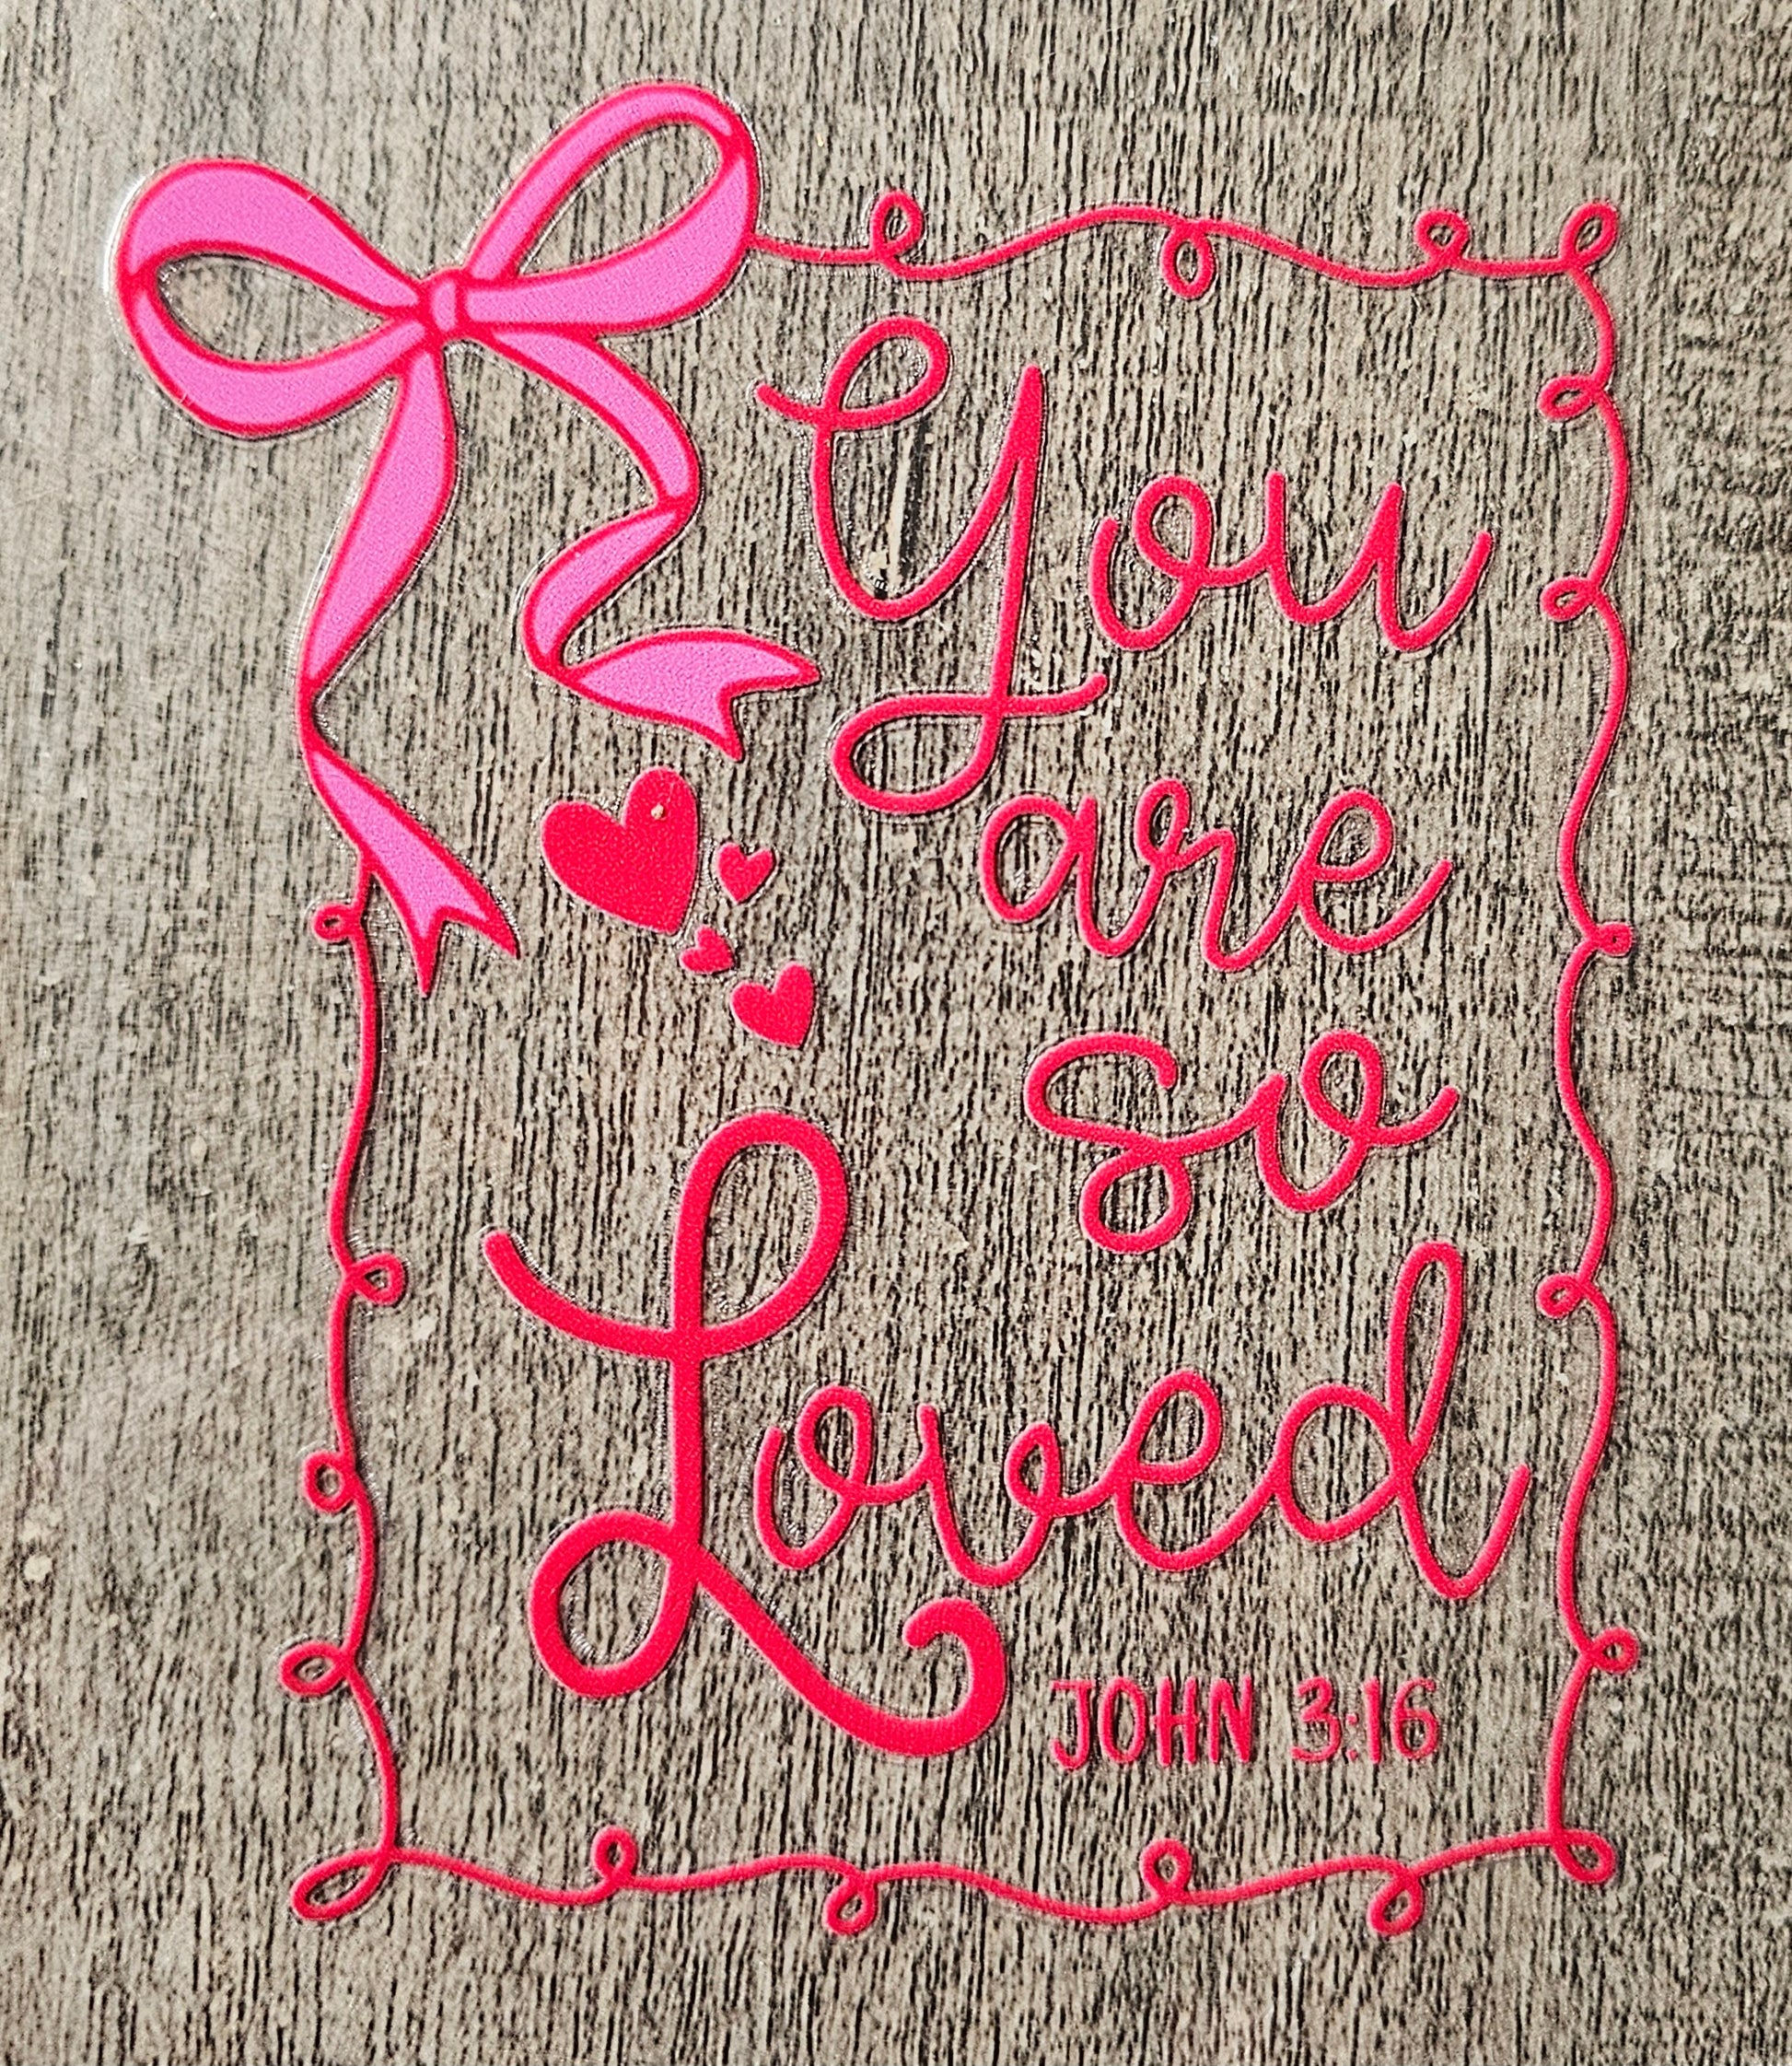 You
are
so
Loved
JOHN 3:16